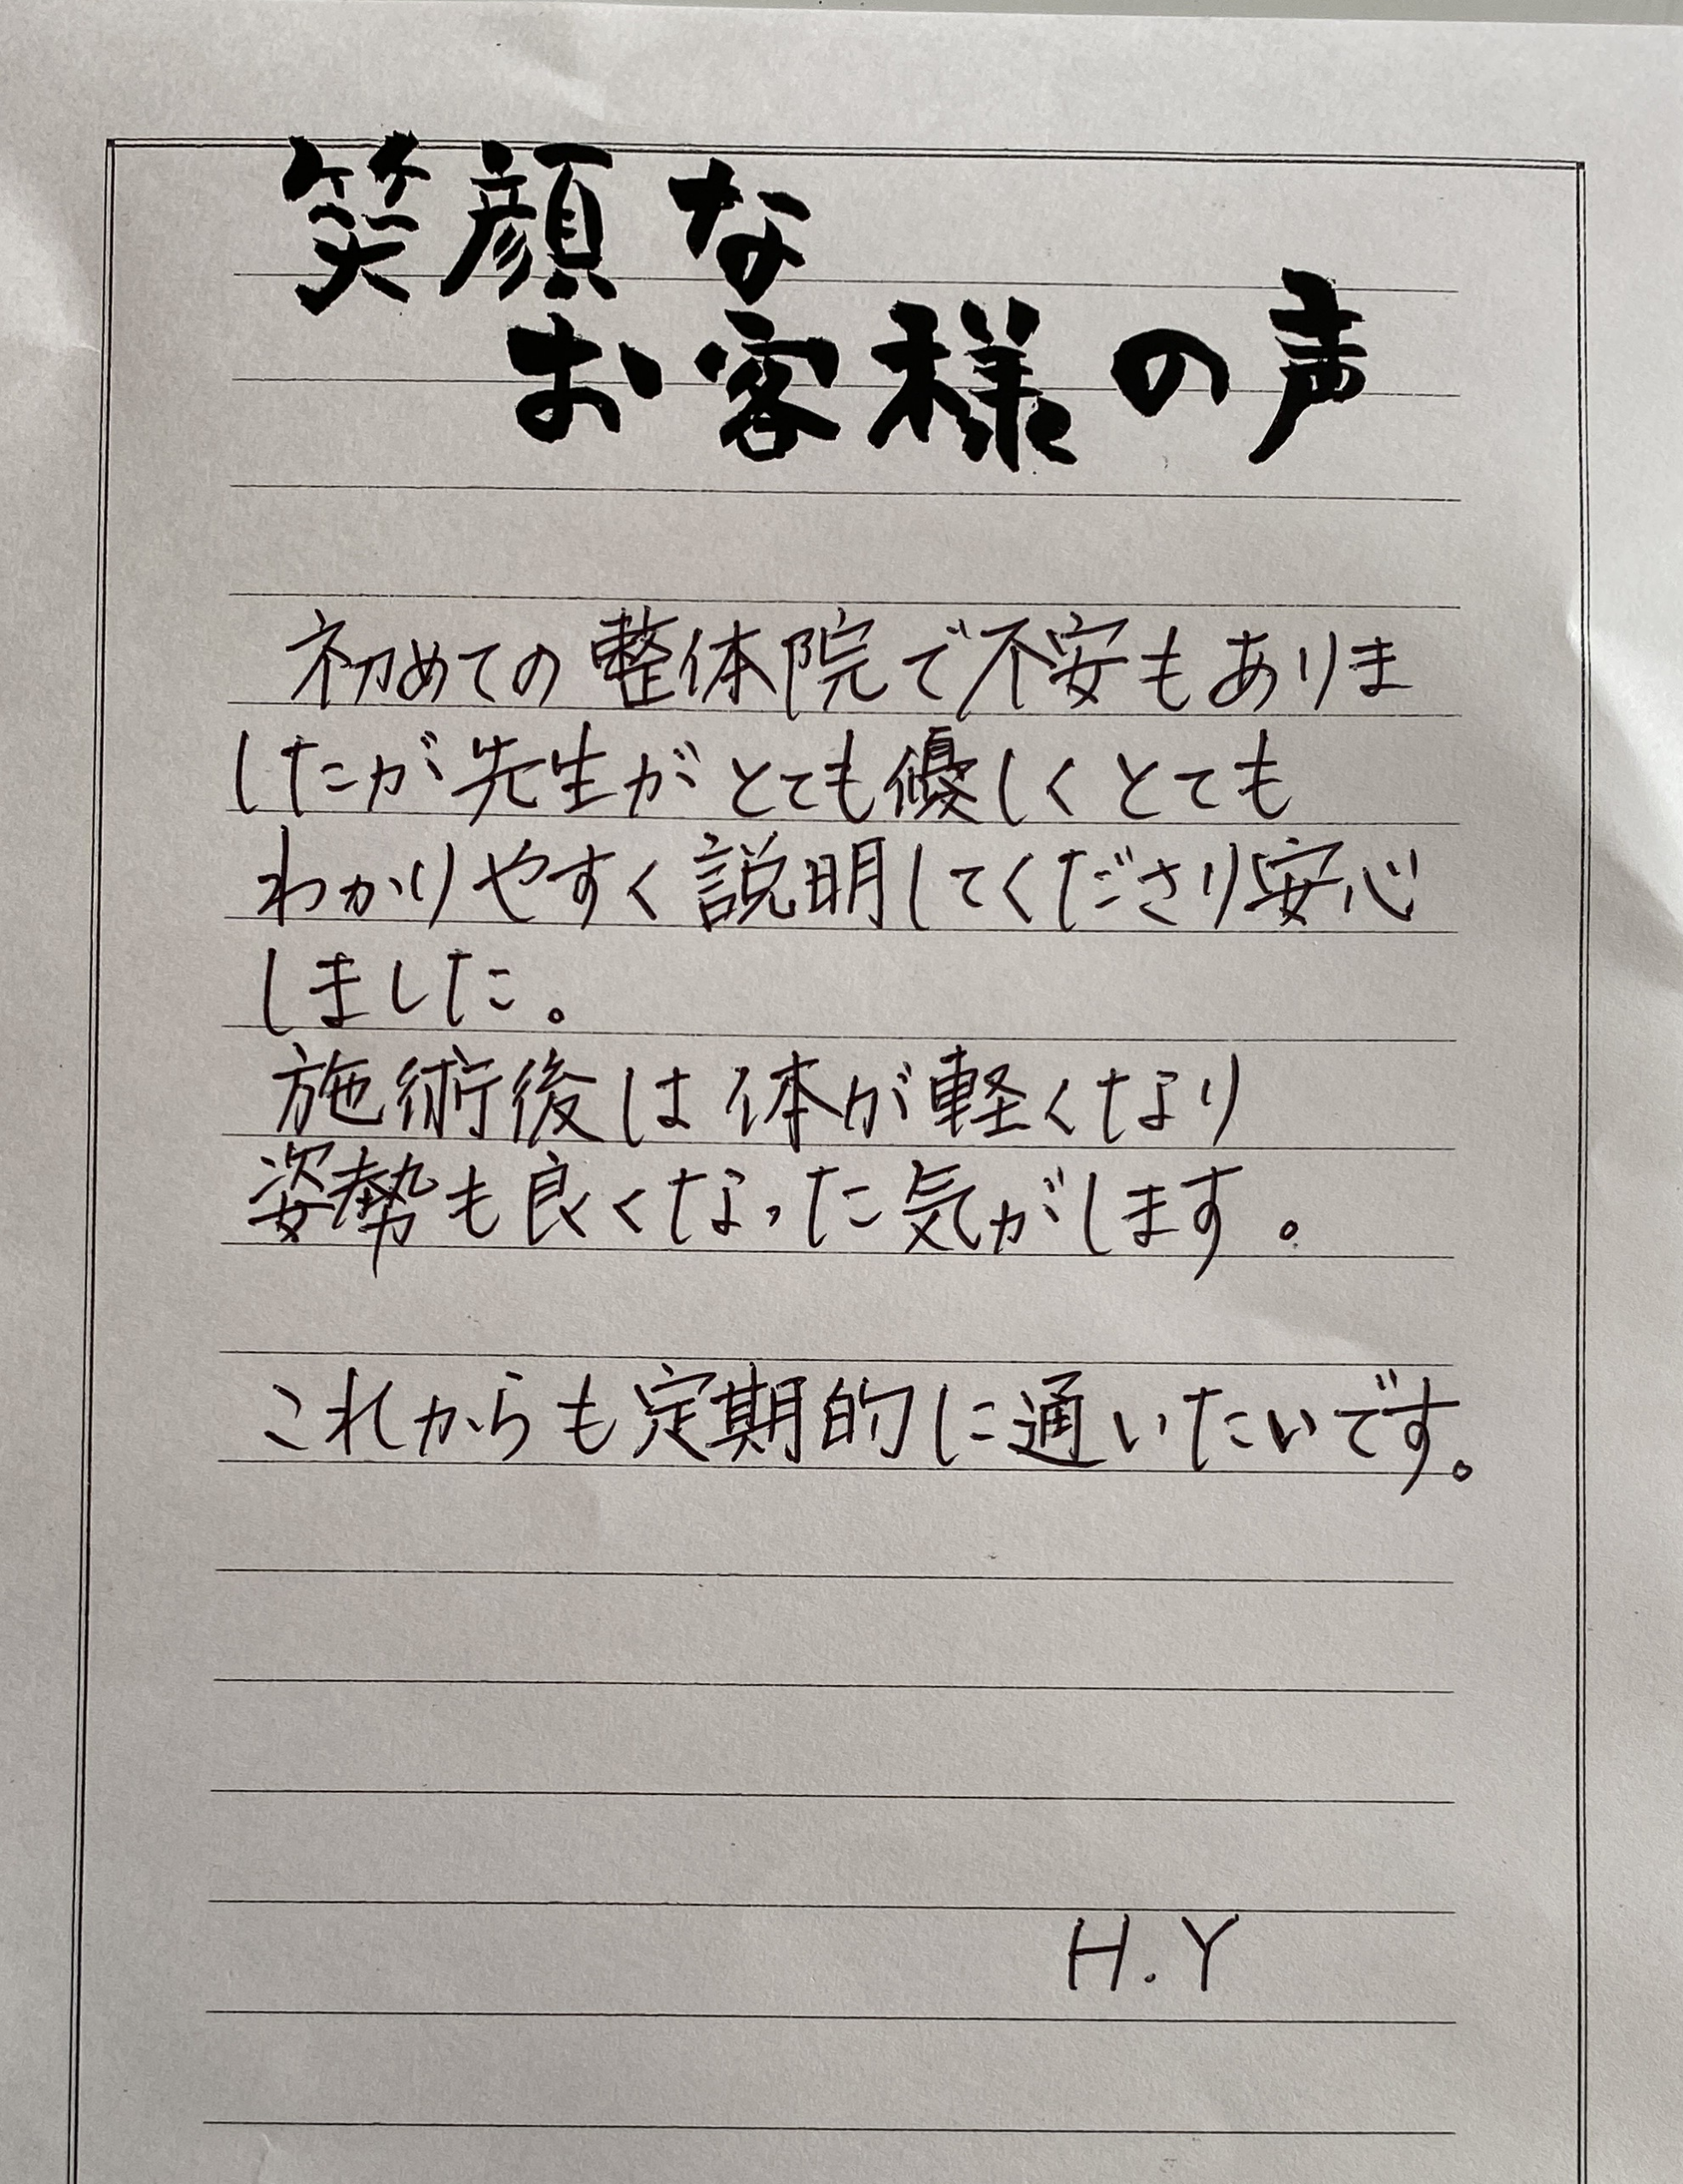 笑顔な
お客様の声
初めての整体院で不安もありま
したが先生がとても優しくとても
わかりやすく説明してくださり安心
しました。
施術後は体が軽くなり
姿勢も良くなった気がします。
これからも定期的に通いたいです。
H.Y